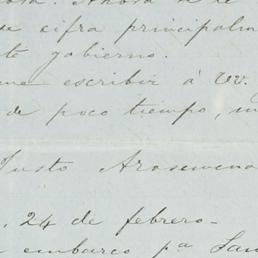 se cifra principalm
te gobierno.
me escribir á VV.
de poco tiempo, m
Justo Arosemena
, 24 de febrero_
embarco pª San